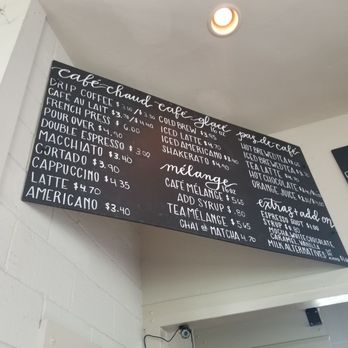 café-chaud
DRIP COFFEE
CAFÉ AU LAIT
FRENCH PRESS
POUR OVER $4.90
DOUBLE ESPRESSO $3.00
MACCHIATO $3.40
CORTADO $3.90
CAPPUCCINO $4.35
LATTE $4.70
AMERICANO $3.40
café-glacé
COLD BREW
ICED LATTE
ICED AMERICANO
SHAKERATO
mélange
CAFÉ MÉLANGE $5.65
ADD SYRUP $.80
TEA MÉLANGE $5.65
CHAI OR MATCHA 4.70
pas de café
HOT BREWED TEA
ICED BREWED TEA
TEA LATTE
HOT CHOCOLATE
ORANGE JUICE
extras + add on
ESPRESSO SHOT $1.00
SYRUP $.80
MOCHA, WHITE CHOCOLATE
CARAMEL, VANILLA
MILK ALTERNATIVES